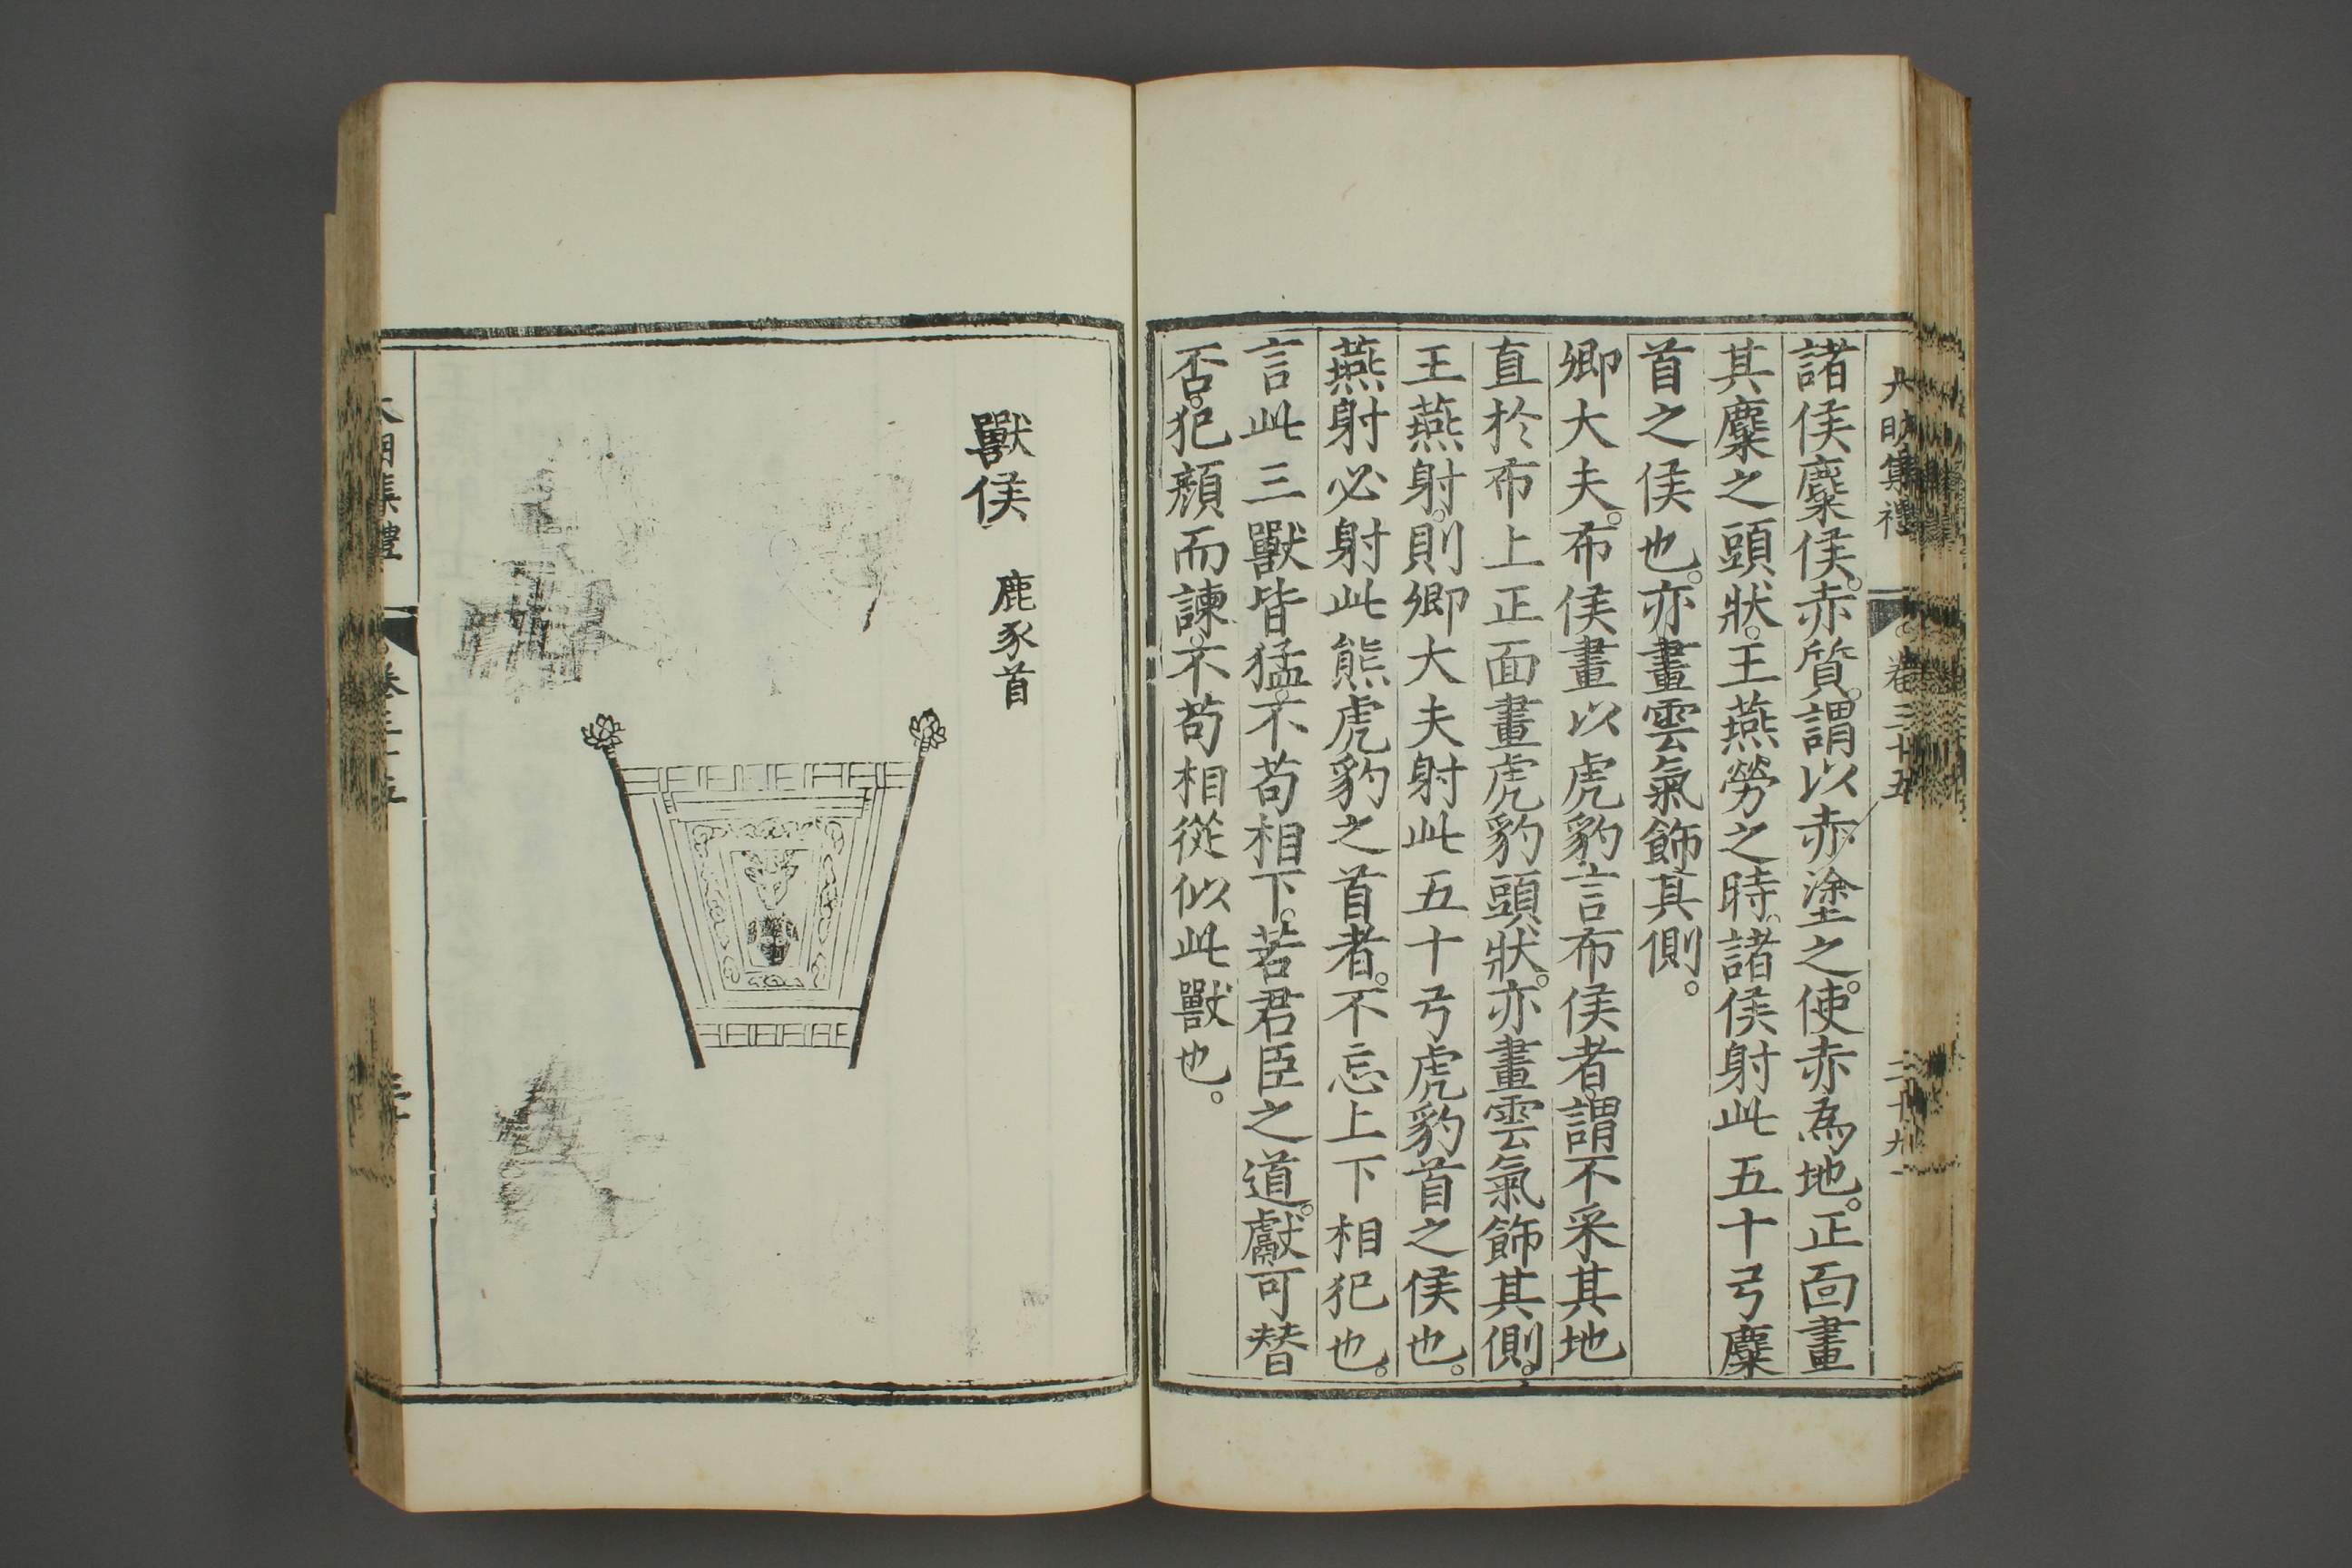 大明集禮 卷三十五 二十九
諸侯麋侯。赤質。謂以赤塗之。使赤為地。正面畫
其麋之頭狀。王燕勞之時。諸侯射此五十弓麋
首之侯也。亦畫雲氣飾其側。
卿大夫。布侯畫以虎豹言布侯者。謂不采其地
直於布上正面畫虎豹頭狀。亦畫雲氣飾其側。
王燕射。則卿大夫射此五十弓虎豹首之侯也。
燕射必射此熊虎豹之首者。不忘上下相犯也。
言此三獸皆猛。不苟相下。若君臣之道。獻可替
否。犯顏而諫。不苟相從似此獸也。
獸侯 鹿豕首
大明集禮 卷三十五